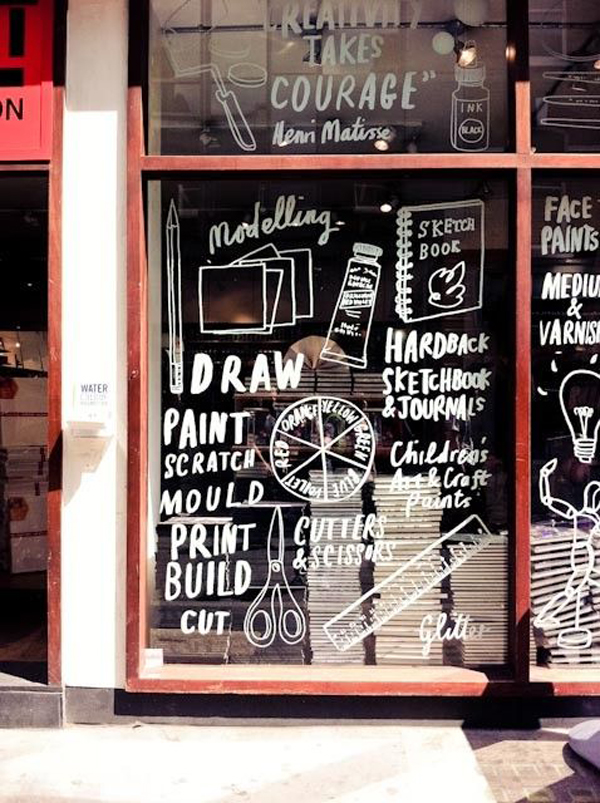 CREATIVITY
TAKES
COURAGE"
Henri Matisse
INK
BLACK
ON
Modelling
SKETCH
BOOK
DRAW
PAINT
SCRATCH
MOULD
PRINT
BUILD
CUT
RED ORANGE YELLOW GREEN BLUE VIOLET
HARDBACK
SKETCHBOOK
& JOURNALS
Children's
Art & Craft
Paints
CUTTERS
& SCISSORS
Glitter
FACE
PAINTS
MEDIU
&
VARNISH
WATER